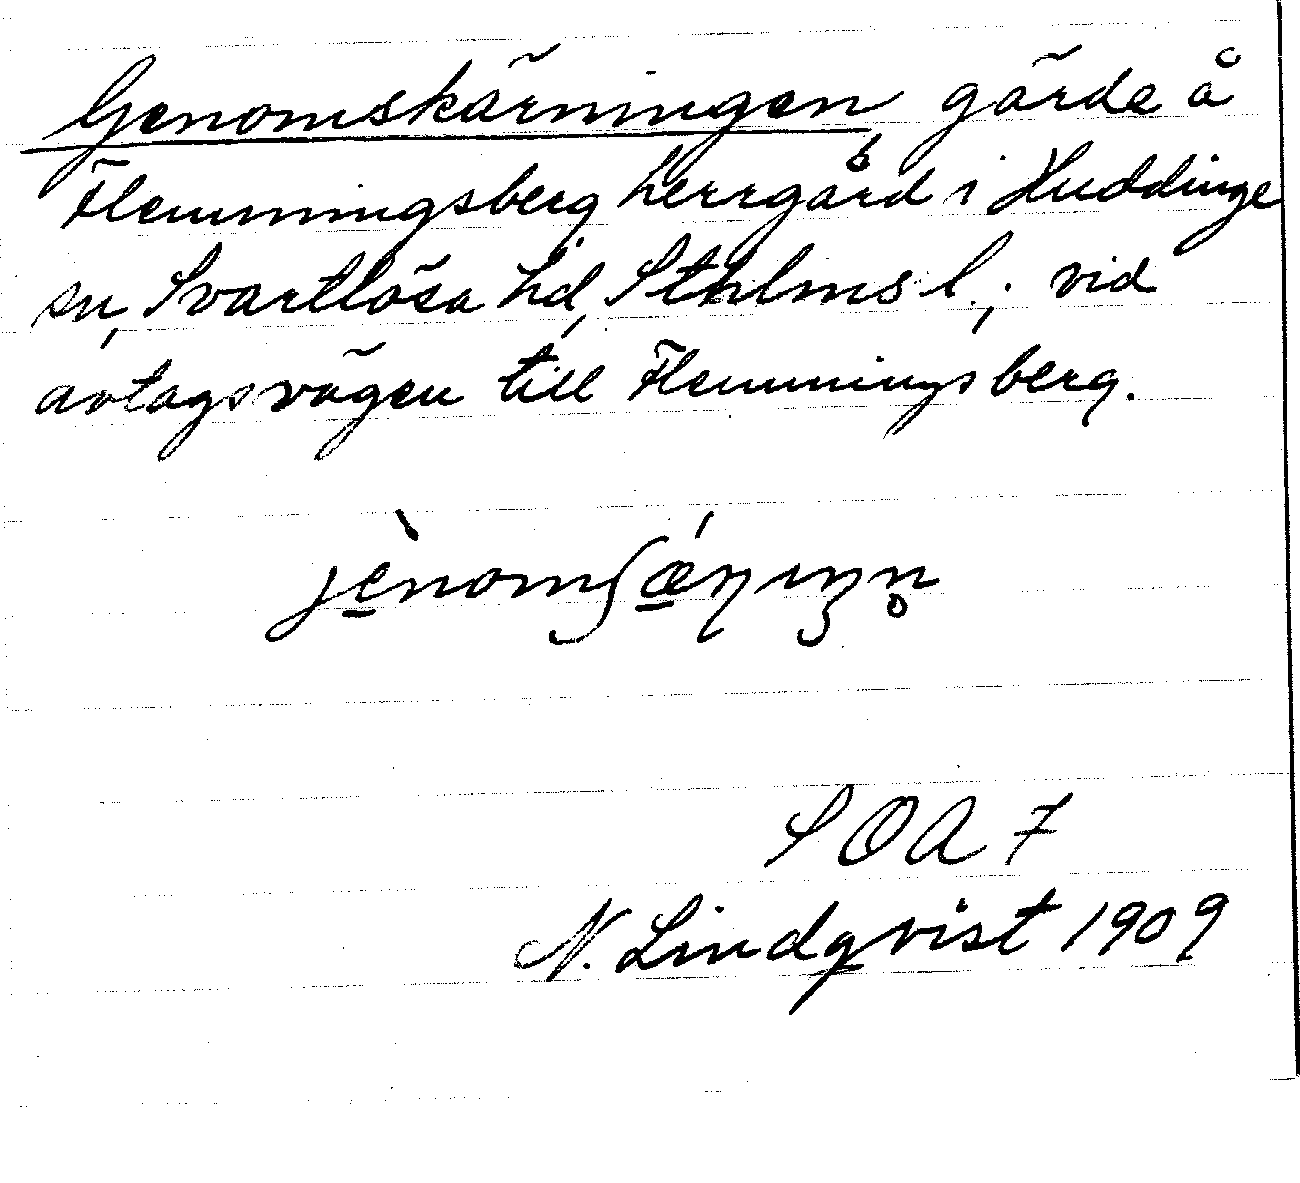 Genomskärningen, gärde å
Flemmingsberg herrgård i Huddinge
sn, Svartlösa hd, Sthlms l.; vid
avtagsvägen till Flemmingsberg.
SOA 7
N. Lindqvist 1909